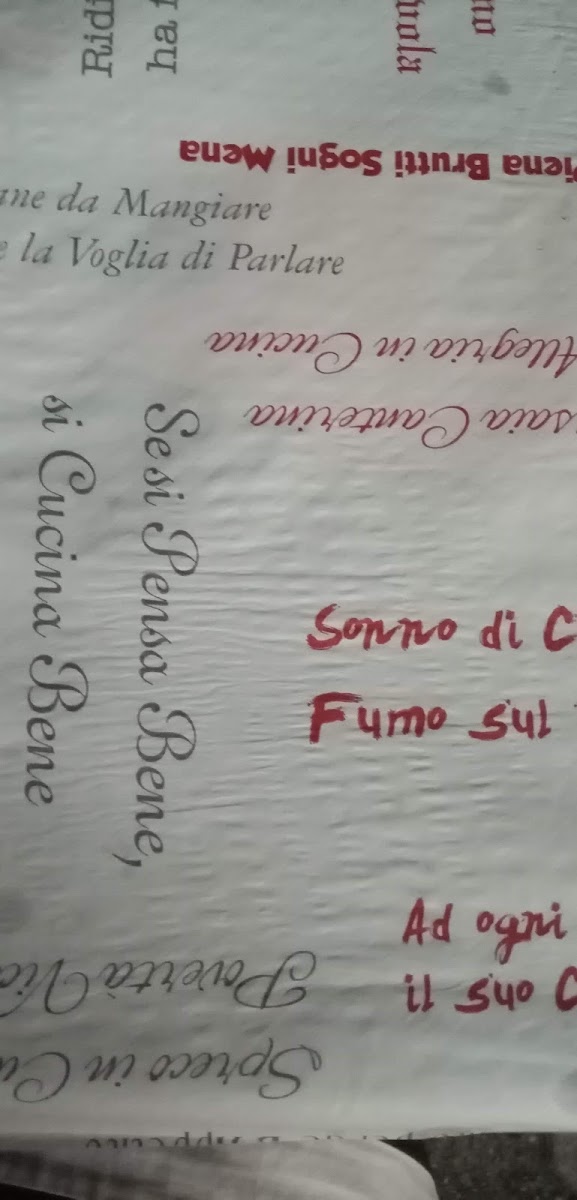 Ridi
ha
uola
no
iena Brutti Sogni Mena
ne da Mangiare
la Voglia di Parlare
saia Canterina
Allegria in Cucina
Se si Pensa Bene,
si Cucina Bene
Sonno di C
Fumo sul
Ad ogni
il suo C
Spreco in Cu
Povertà Vic